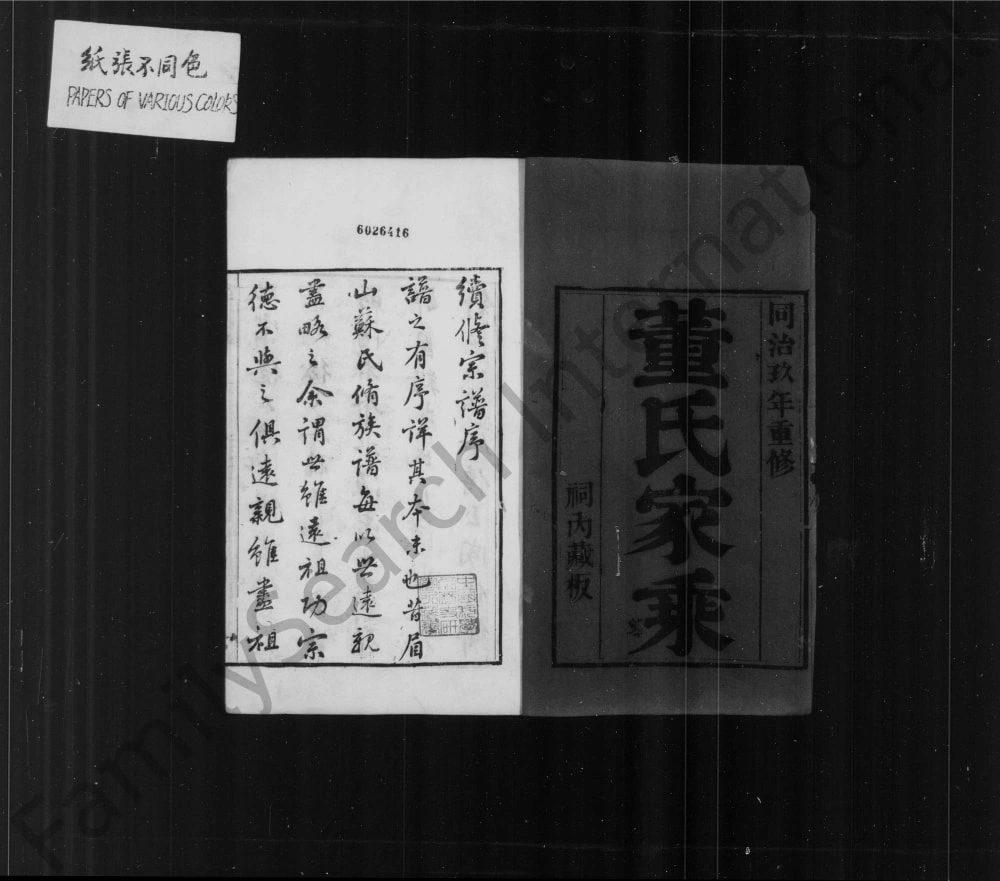 纸張不同色
PAPERS OF VARIOUS COLORS
同治玖年重修
董氏家乘
祠内藏板
6026416
續修宗譜序
譜之有序詳其本末也昔眉
山蘇氏脩族譜每以世遠親
盡略之余謂世雖遠祖功宗
德不與之俱遠親雖盡祖
FamilySearch International